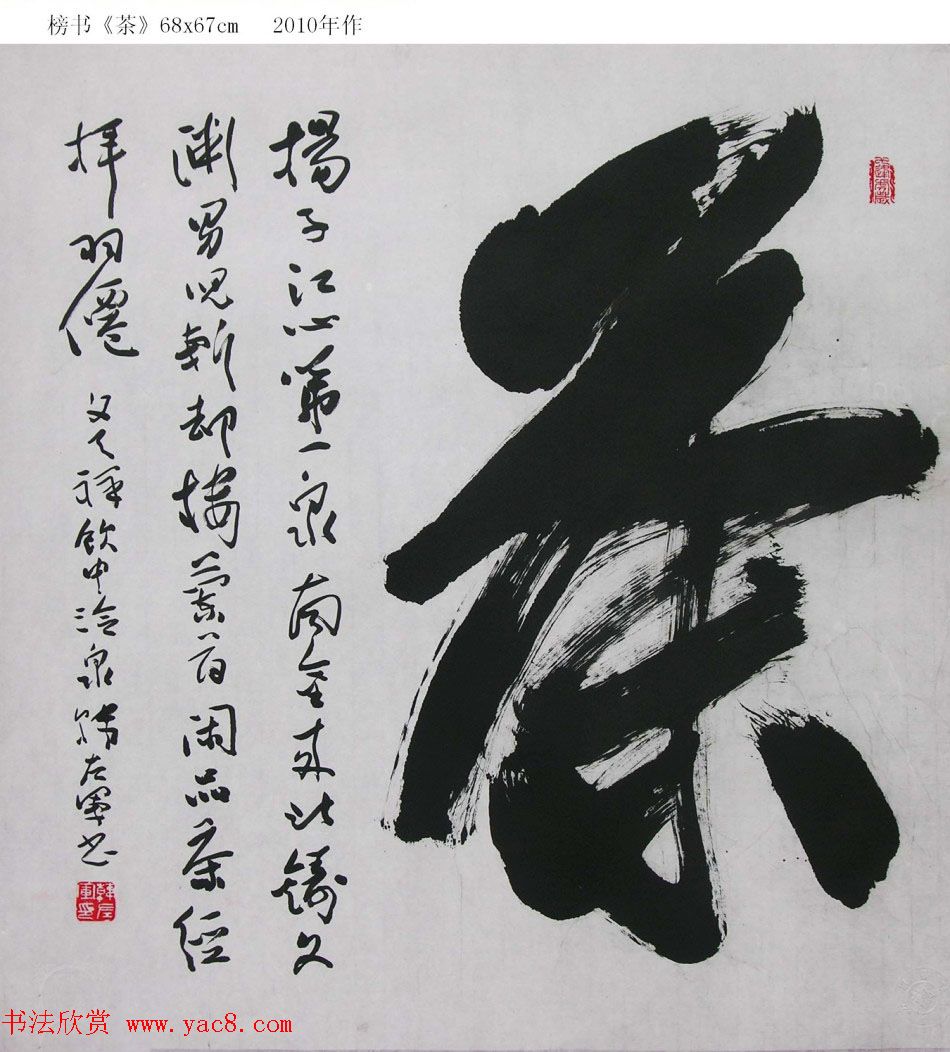 榜书《茶》68x67cm 2010年作
茶
揚子江心第一泉南金来此鑄文
渊男児斬却楼蘭首闲品茶経
拜羽僊 文天祥飲中泠泉 韩左軍书
书法欣赏 www.yac8.com